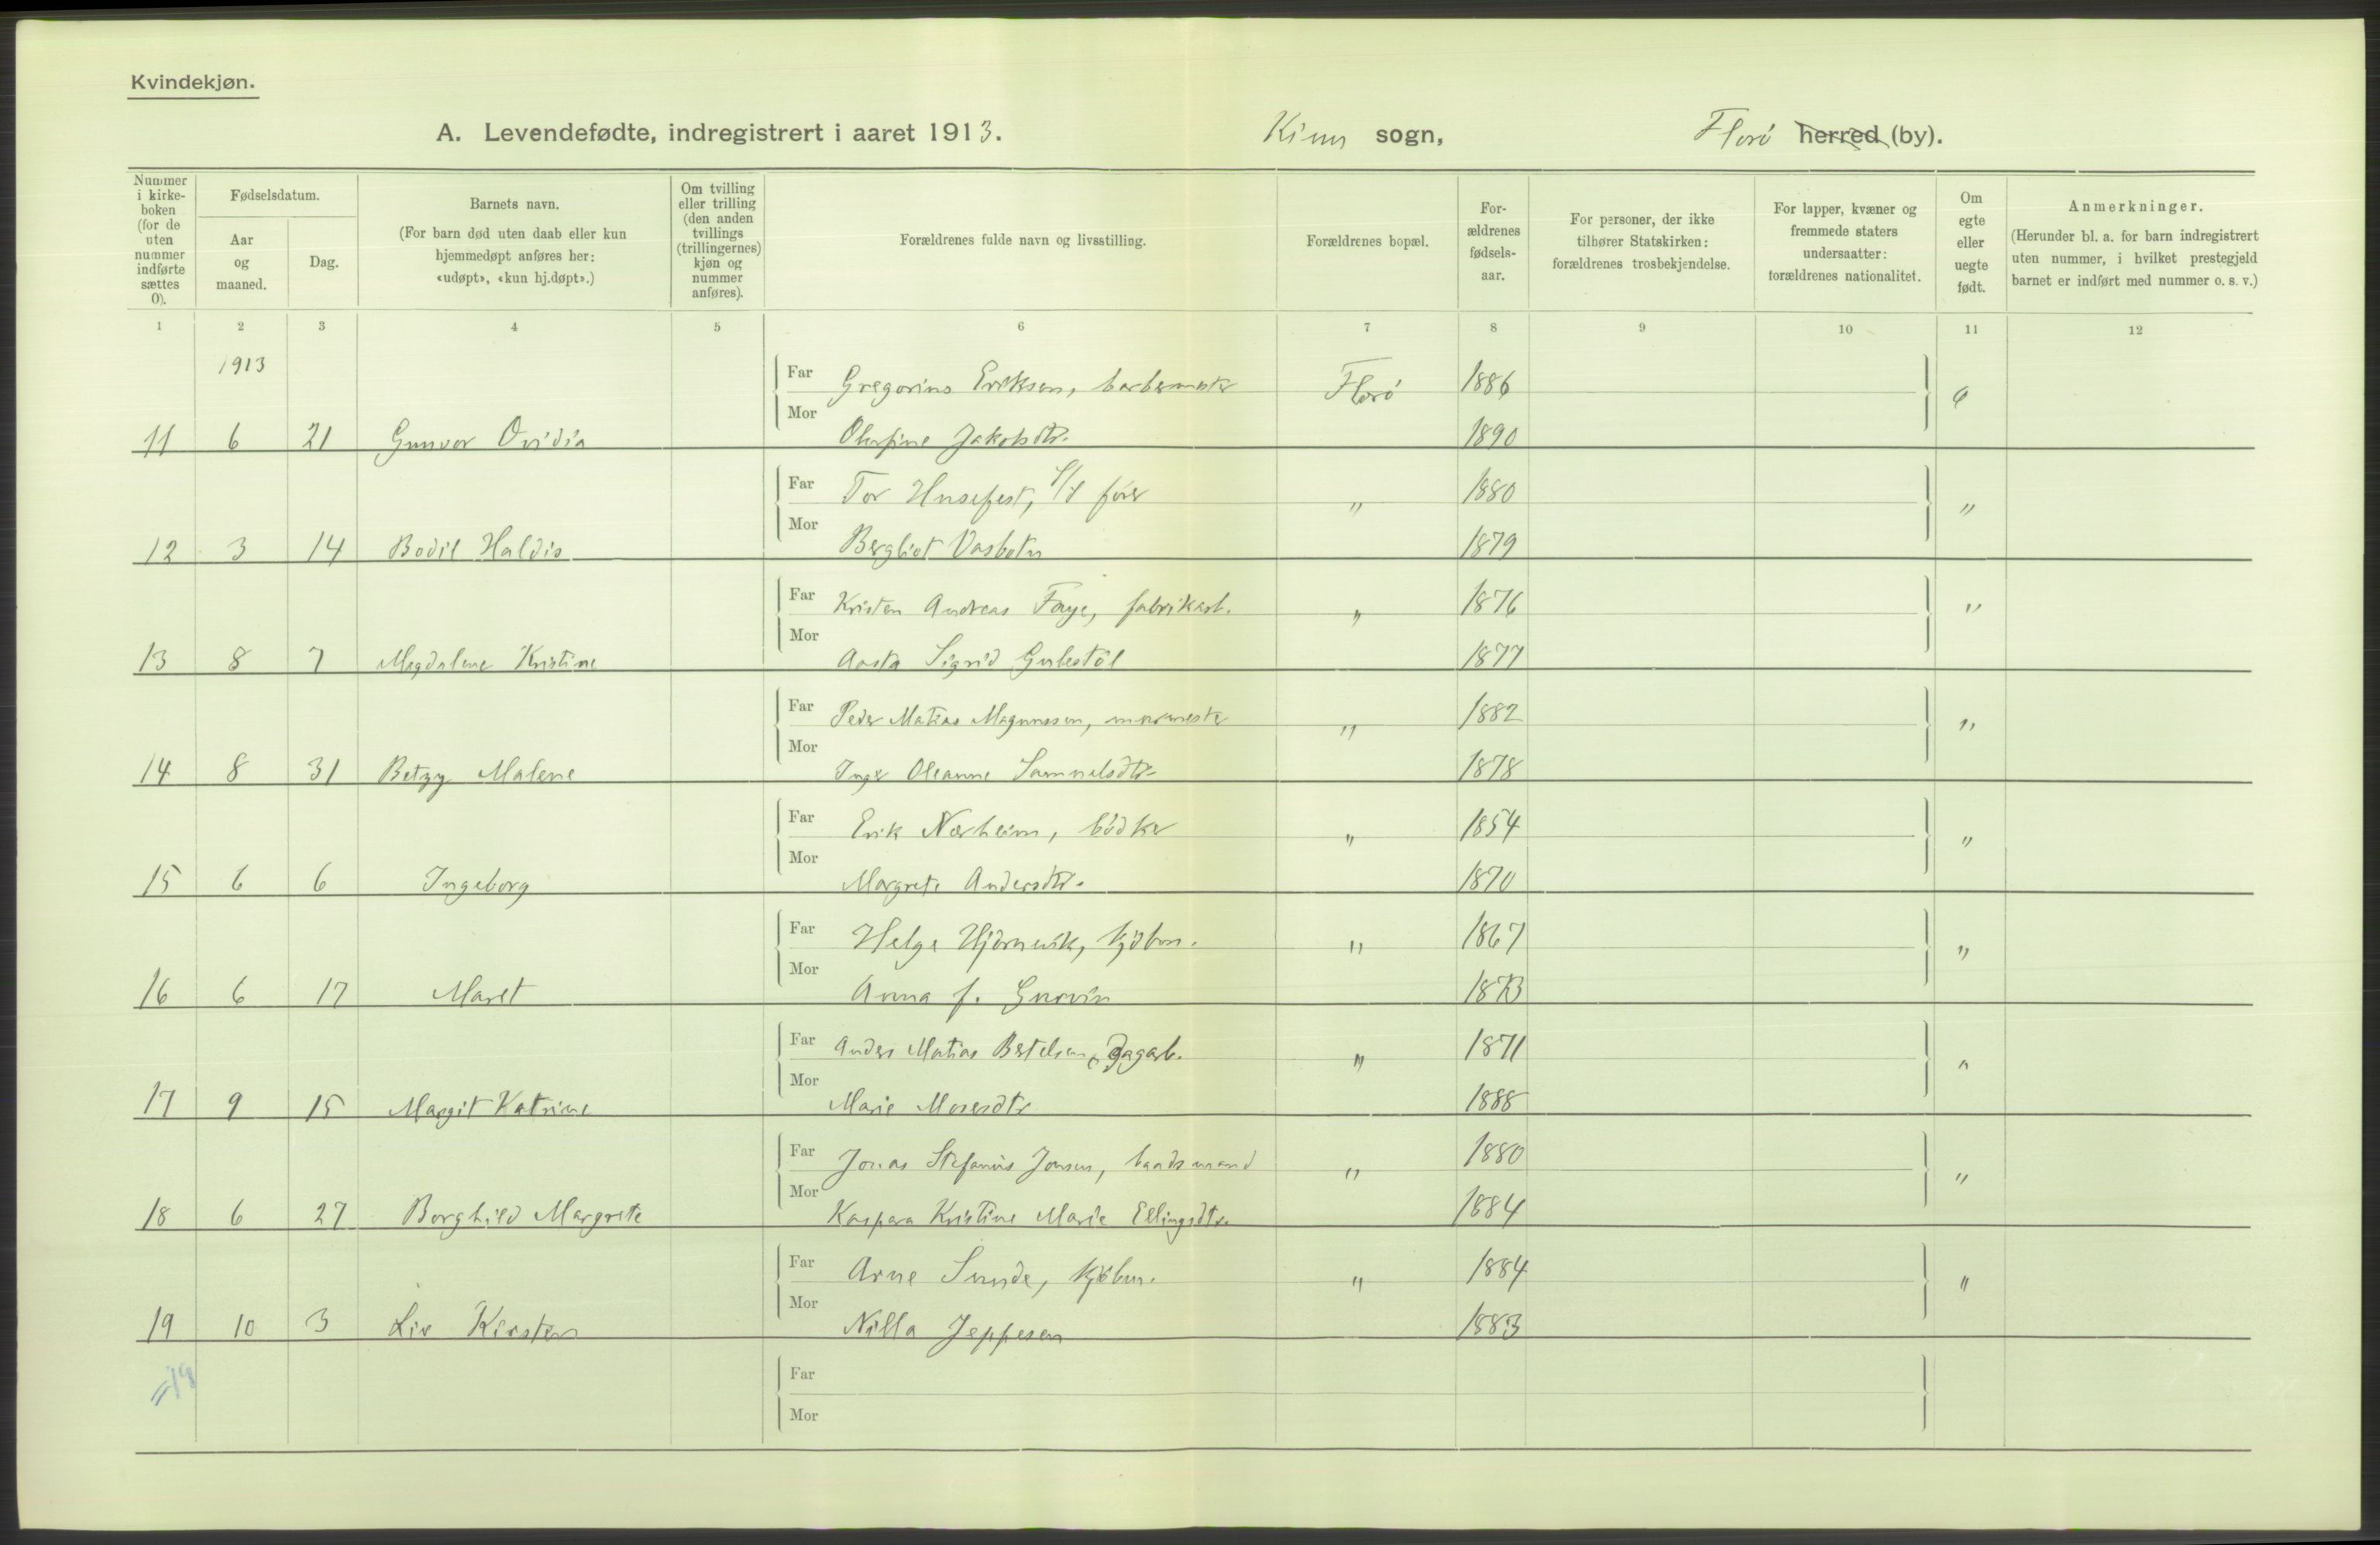 Kvindekjøn.
A. Levendefødte, indregistrert i aaret 1913. Kinn sogn, Florø herred (by).
Nummer i kirke-boken (for de uten nummer indførte sættes 0).
Fødselsdatum.
Aar og maaned.
Dag.
Barnets navn.
(For barn død uten daab eller kun hjemmedøpt anføres her: «udøpt», «kun hj.døpt».)
Om tvilling eller trilling (den anden tvillings (trillingernes) kjøn og nummer anføres).
Forældrenes fulde navn og livsstilling.
Forældrenes bopæl.
For-ældrenes fødsels-aar.
For personer, der ikke tilhører Statskirken: forældrenes trosbekjendelse.
For lapper, kvæner og fremmede staters undersaatter: forældrenes nationalitet.
Om egte eller uegte født.
Anmerkninger.
(Herunder bl. a. for barn indregistrert uten nummer, i hvilket prestegjeld barnet er indført med nummer o. s. v.)
1 2 3 4 5 6 7 8 9 10 11 12
1913
Far Gregorius Eriksen, barbermester Florø 1886 e
11 6 21 Gunvor Ovidia Mor Olufine Jakobsdtr. 1890
Far Tor Husefest, S/S fører " 1880 "
12 3 14 Bodil Haldis Mor Bergliot Vasbotn 1879
Far Kristen Andreas Faye, fabrikarb. " 1876 "
13 8 7 Magdalene Kristine Mor Aasta Sigrid Gulestøl 1877
Far Peder Matias Magnussen, murmester " 1882 "
14 8 31 Betzy Malene Mor Inger Oleanne Samuelsdtr. 1878
Far Erik Nærheim, bødker " 1854 "
15 6 6 Ingeborg Mor Margrete Andersdtr. 1870
Far Helge Hjørnevik, kjøbm. " 1867 "
16 6 17 Maret Mor Anna f. Gurvin 1873
Far Anders Matias Bertelsen, Dagarb. " 1871 "
17 9 15 Margit Katrine Mor Marie Mosesdtr 1888
Far Jonas Stefanus Jonsen, baadsmand " 1880 "
18 6 27 Borghild Margrete Mor Kaspara Kristine Marie Ellingsdtr. 1884
Far Arne Sunde, kjøbm. " 1884 "
19 10 3 Liv Kirsten Mor Nilla Jeppesen 1883
=19
Far
Mor